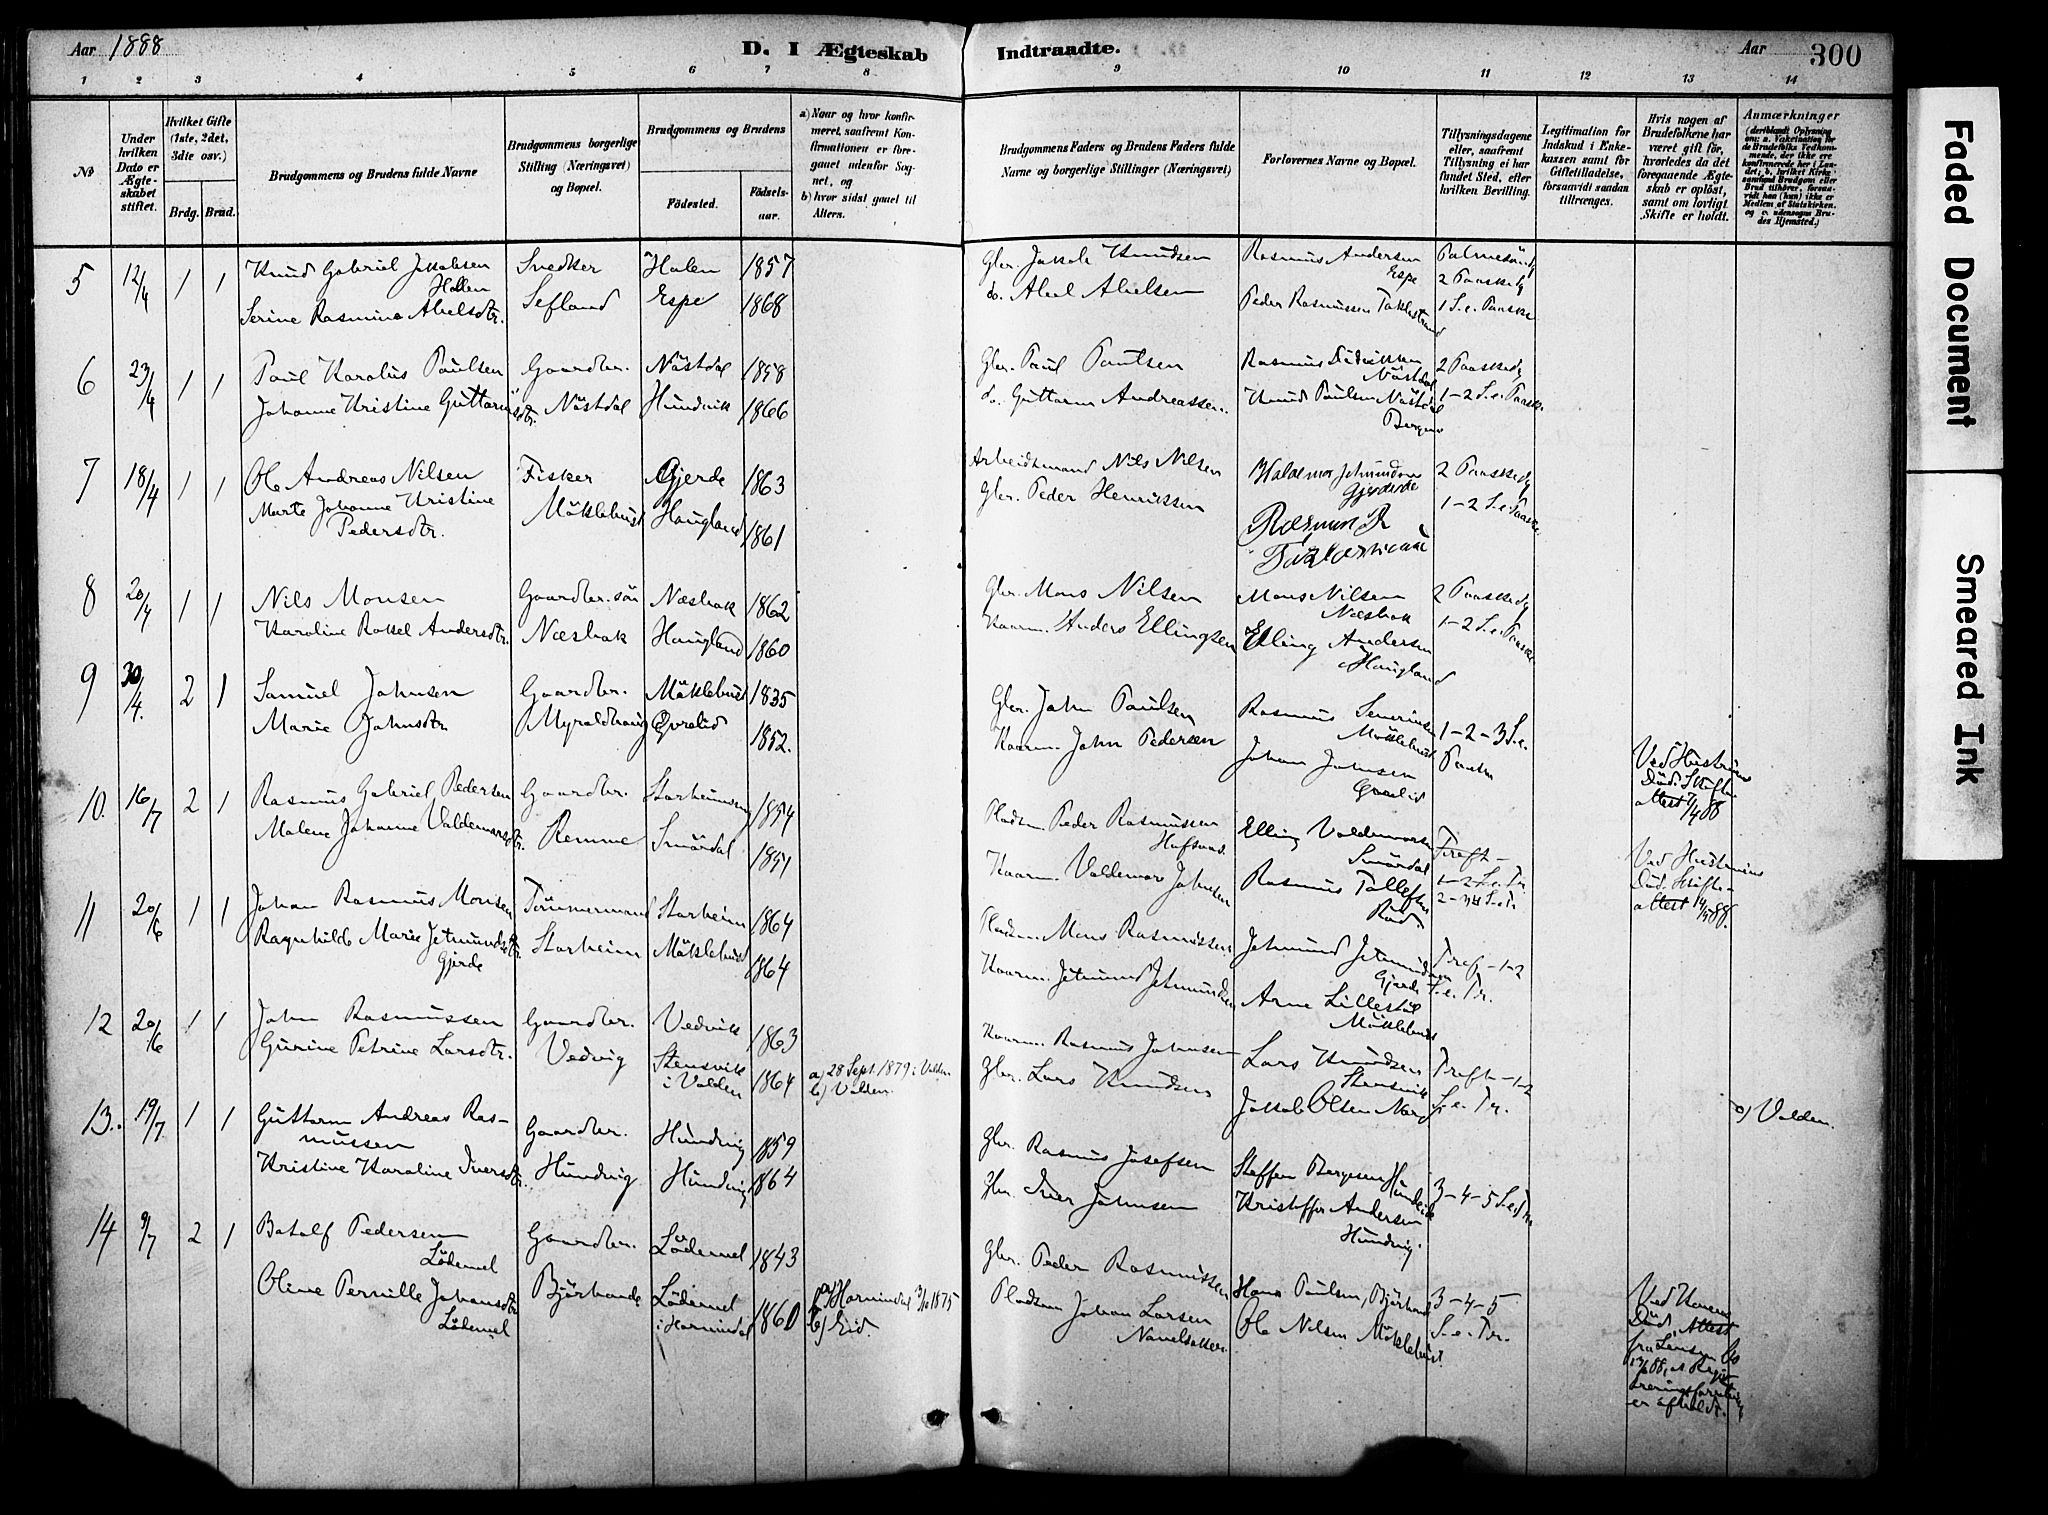 Aar 1888
D. I Ægteskab
Indtraadte.
Aar 300
1 2 3 4 5 6 7 8 9 10 11 12 13 14
№
Under hvilken Dato er Ægteskabet stiftet.
Hvilket Gifte (1ste, 2det, 3die osv.)
Brdg. Brud.
Brudgommens og Brudens fulde Navne
Brudgommens borgerlige Stilling (Næringsvei) og Bopæl.
Brudgommens og Brudens
Födested.
Födselsaar.
a) Naar og hvor konfirmeret, saafremt Konfirmationen er foregaaet udenfor Sognet, og
b) hvor sidst gaaet til Alters.
Brudgommens Faders og Brudens Faders fulde Navne og borgerlige Stillinger (Næringsvei)
Forlovernes Navne og Bopæl.
Tillysningsdagene eller, saafremt Tillysning ei har fundet Sted, efter hvilken Bevilling.
Legitimation for Indskud i Enkekassen samt for Giftetilladelse, forsaavidt saadan tiltrænges.
Hvis nogen af Brudefolkene har været gift för, hvorledes da det foregaaende Ægteskab er oplöst, samt om lovligt Skifte er holdt.
Anmærkninger
(deriblandt Oplysning om: a. Vakcination for de Brudefolks Vedkommende, der ikke ere konfirmerede her i Landet; b. hvilket Kirkesamfund Brudgom eller Brud tilhörer, forsaavidt han (hun) ikke er Medlem af Statskirken, og c. udensogns Brudes Hjemsted.)
5 12/4 1 1 Knud Gabriel Jakobsen Snedker Halen 1857 Gbr. Jakob Knudsen Rasmus Andersen Palmesönd
Halen Espe 2 Paaskedg
Serine Rasmine Abelsdtr. Sefland Espe 1868 do. Abel Abelsen Peder Rasmussen Taklestrand 1 S.e. Paaske
6 23/4 1 1 Paul Karolus Paulsen Gaardbr. Nöstdal 1858 Gbr. Paul Paulsen Rasmus Didriksen 2 Paaskedg
Nöstdal
Johanne Kristine Guttormsdtr. Nöstdal Hundvik 1866 do. Guttorm Andreassen Knud Paulsen Nöstdal 1-2 S.e. Paaske
7 18/4 1 1 Ole Andreas Nilsen Fisker Gjerde 1863 Arbeidsmand Nils Nilsen 2 Paaskedg
Marte Johanne Kristine Möklebust Haugland Gbr. Peder Henriksen 1-2 S.e. Paaske
Pedersdtr. 1861 Rasmus R
8 20/4 1 1 Nils Monsen Gaardbr. sön Næsbak 1862 Gbr. Mons Nilsen Mons Nilsen 2 Paaskedg
Næsbak
Karoline Rakel Andersdtr. Næsbak Haugland 1860 Kaarm. Anders Ellingsen Elling Andersen 1-2 S.e. Paaske
Haugland
9 30/4. 2 1 Samuel Johnsen Gaardbr. Möklebust 1835 Gbr. John Paulsen Rasmus Severinsen 1-2-3 S.e.
Möklebust
Marie Johnsdtr. Myroldhaug 1852. Kaarm. John Pedersen Johan Johnsen Paaske
Ved Hustruens Död. Skifteattest 7/4 88
10. 16/7 2 1 Rasmus Gabriel Pedersen Gaardbr. Starheimseng 1854 Pladsm. Peder Rasmussen Elling Valdemarsen Trefh-
Smördal
Malene Johanne Valdemarsdtr. Remme Smördal 1851 Kaarm. Valdemar Johnsen Rasmus Tollefsen 1-2 S.e. Tr.
2-3 S.e. Tr
Ved Hustruens Död. Skifteattest 88.
11 20/6 1 1 Johan Rasmus Monsen Tömmermand Starheim 1864 Pladsm. Mons Rasmussen Jetmund Jetmundsen Trefh-1-2
Gjerde S.e. Tr.
Ragnhilde Marie Jetmundsdtr. Starheim Möklebust 1864 Kaarm. Jetmund Jetmundsen Arne Lillestöl
Gjerde Möklebust
12 20/6 1 1 John Rasmussen Gaardbr. Vedvik 1863 Kaarm. Rasmus Johnsen Lars Knudsen Trefh-1-2
Stensvik
Gurine Petrine Larsdtr. Vedvig Stensvik 1864 a) 28 Sept. 1879 i Valden Gbr. Lars Knudsen Jakob Olsen Nav S.e. Tr.
i Valden b) Valden. c) Valden.
13. 19/7 1 1 Guttorm Andreas Rasmussen Gaardbr. Hundvig 1859 Gbr. Rasmus Josefsen Steffen Bergesen Hundvik
Kristine Karoline Iversdtr. Hundvig Hundvig 1864 Gbr. Iver Johnsen Kristoffer Andersen 3-4-5 S.e. Tr
Hundvig.
14 9/7 2 1 Batolf Pedersen Gaardbr. Lödemel 1843 Gbr. Peder Rasmussen Hans Paulsen, Björhaud 3-4-5
Lödemel
Oline Pernille Johansdtr. Björhaude Lödemel 1860 a) Hornindal 3/10 1875 Pladsm Johan Larsen Ole Nilsen Möklebust S.e. Tr.
Lödemel i Hornindal b) Eid. Navelsaker
Ved Konens Död, Attest fra Lensm
er afholdt.
Faded Document
Smeared Ink